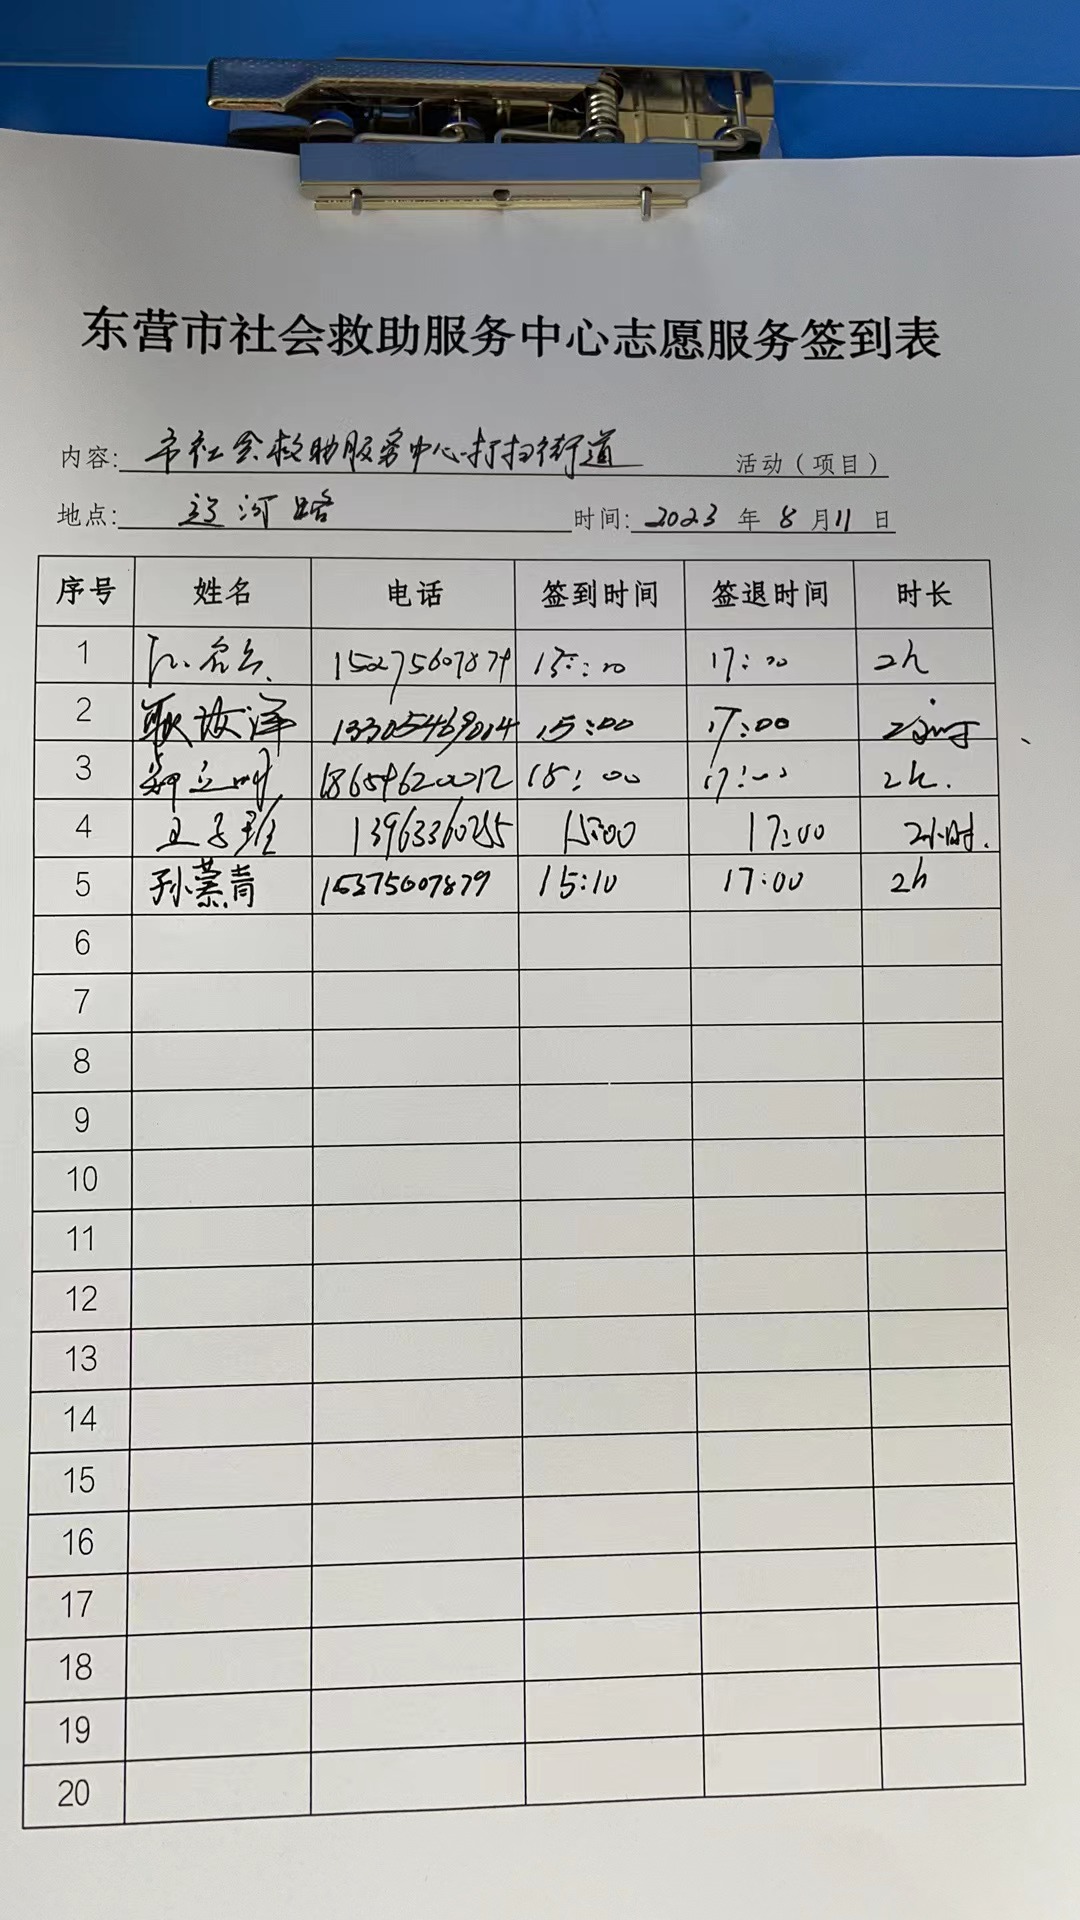 东营市社会救助服务中心志愿服务签到表
内容: 市社会救助服务中心打扫街道 活动（项目）
地点: 辽河路 时间: 2023 年 8 月 11 日
序号 姓名 电话 签到时间 签退时间 时长
1 15275607879 15:00 17:00 2h
2 13305469014 15:00 17:00 2小时
3 18654620012 15:00 17:00 2h.
4 13963360255 15:00 17:00 2小时.
5 孙荣青 15375007879 15:10 17:00 2h
6
7
8
9
10
11
12
13
14
15
16
17
18
19
20